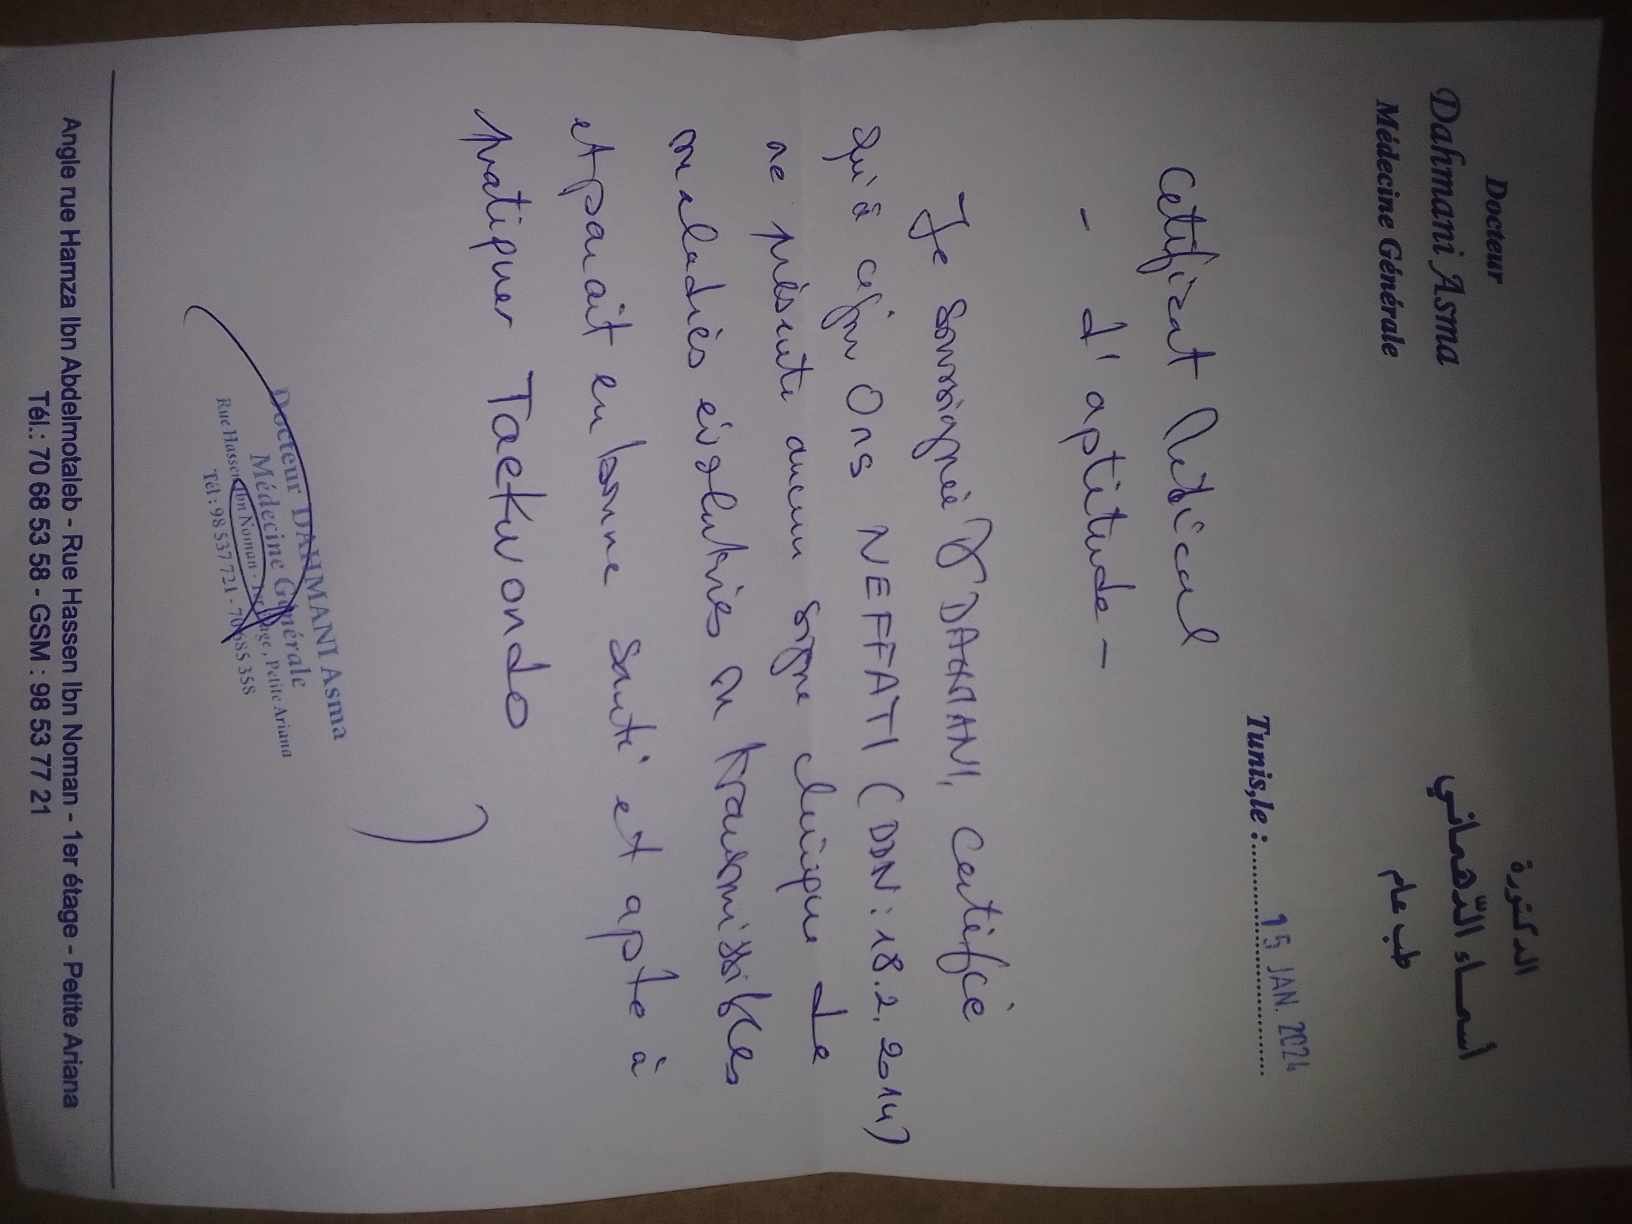 Docteur
Dahmani Asma
Médecine Générale
الدكتورة
أسماء الدّهماني
طب عام
Tunis,le : 15 JAN. 2024
Certificat Médical
- d'aptitude -
Je soussignée Dr DAHMANI, certifie
qu'à ce jour Ons NEFFATI (DDN : 18.2.2014)
ne présente aucun signe clinique de
maladies évolutives ou transmissibles
et parait en bonne santé et apte à
pratiquer Taekwondo
Docteur DAHMANI Asma
Médecine Générale
Rue Hassen Ibn Noman - 1er étage, Petite Ariana
Tél : 98 537 721 - 70 685 358
Angle rue Hamza Ibn Abdelmotaleb - Rue Hassen Ibn Noman - 1er étage - Petite Ariana
Tél.: 70 68 53 58 - GSM : 98 53 77 21